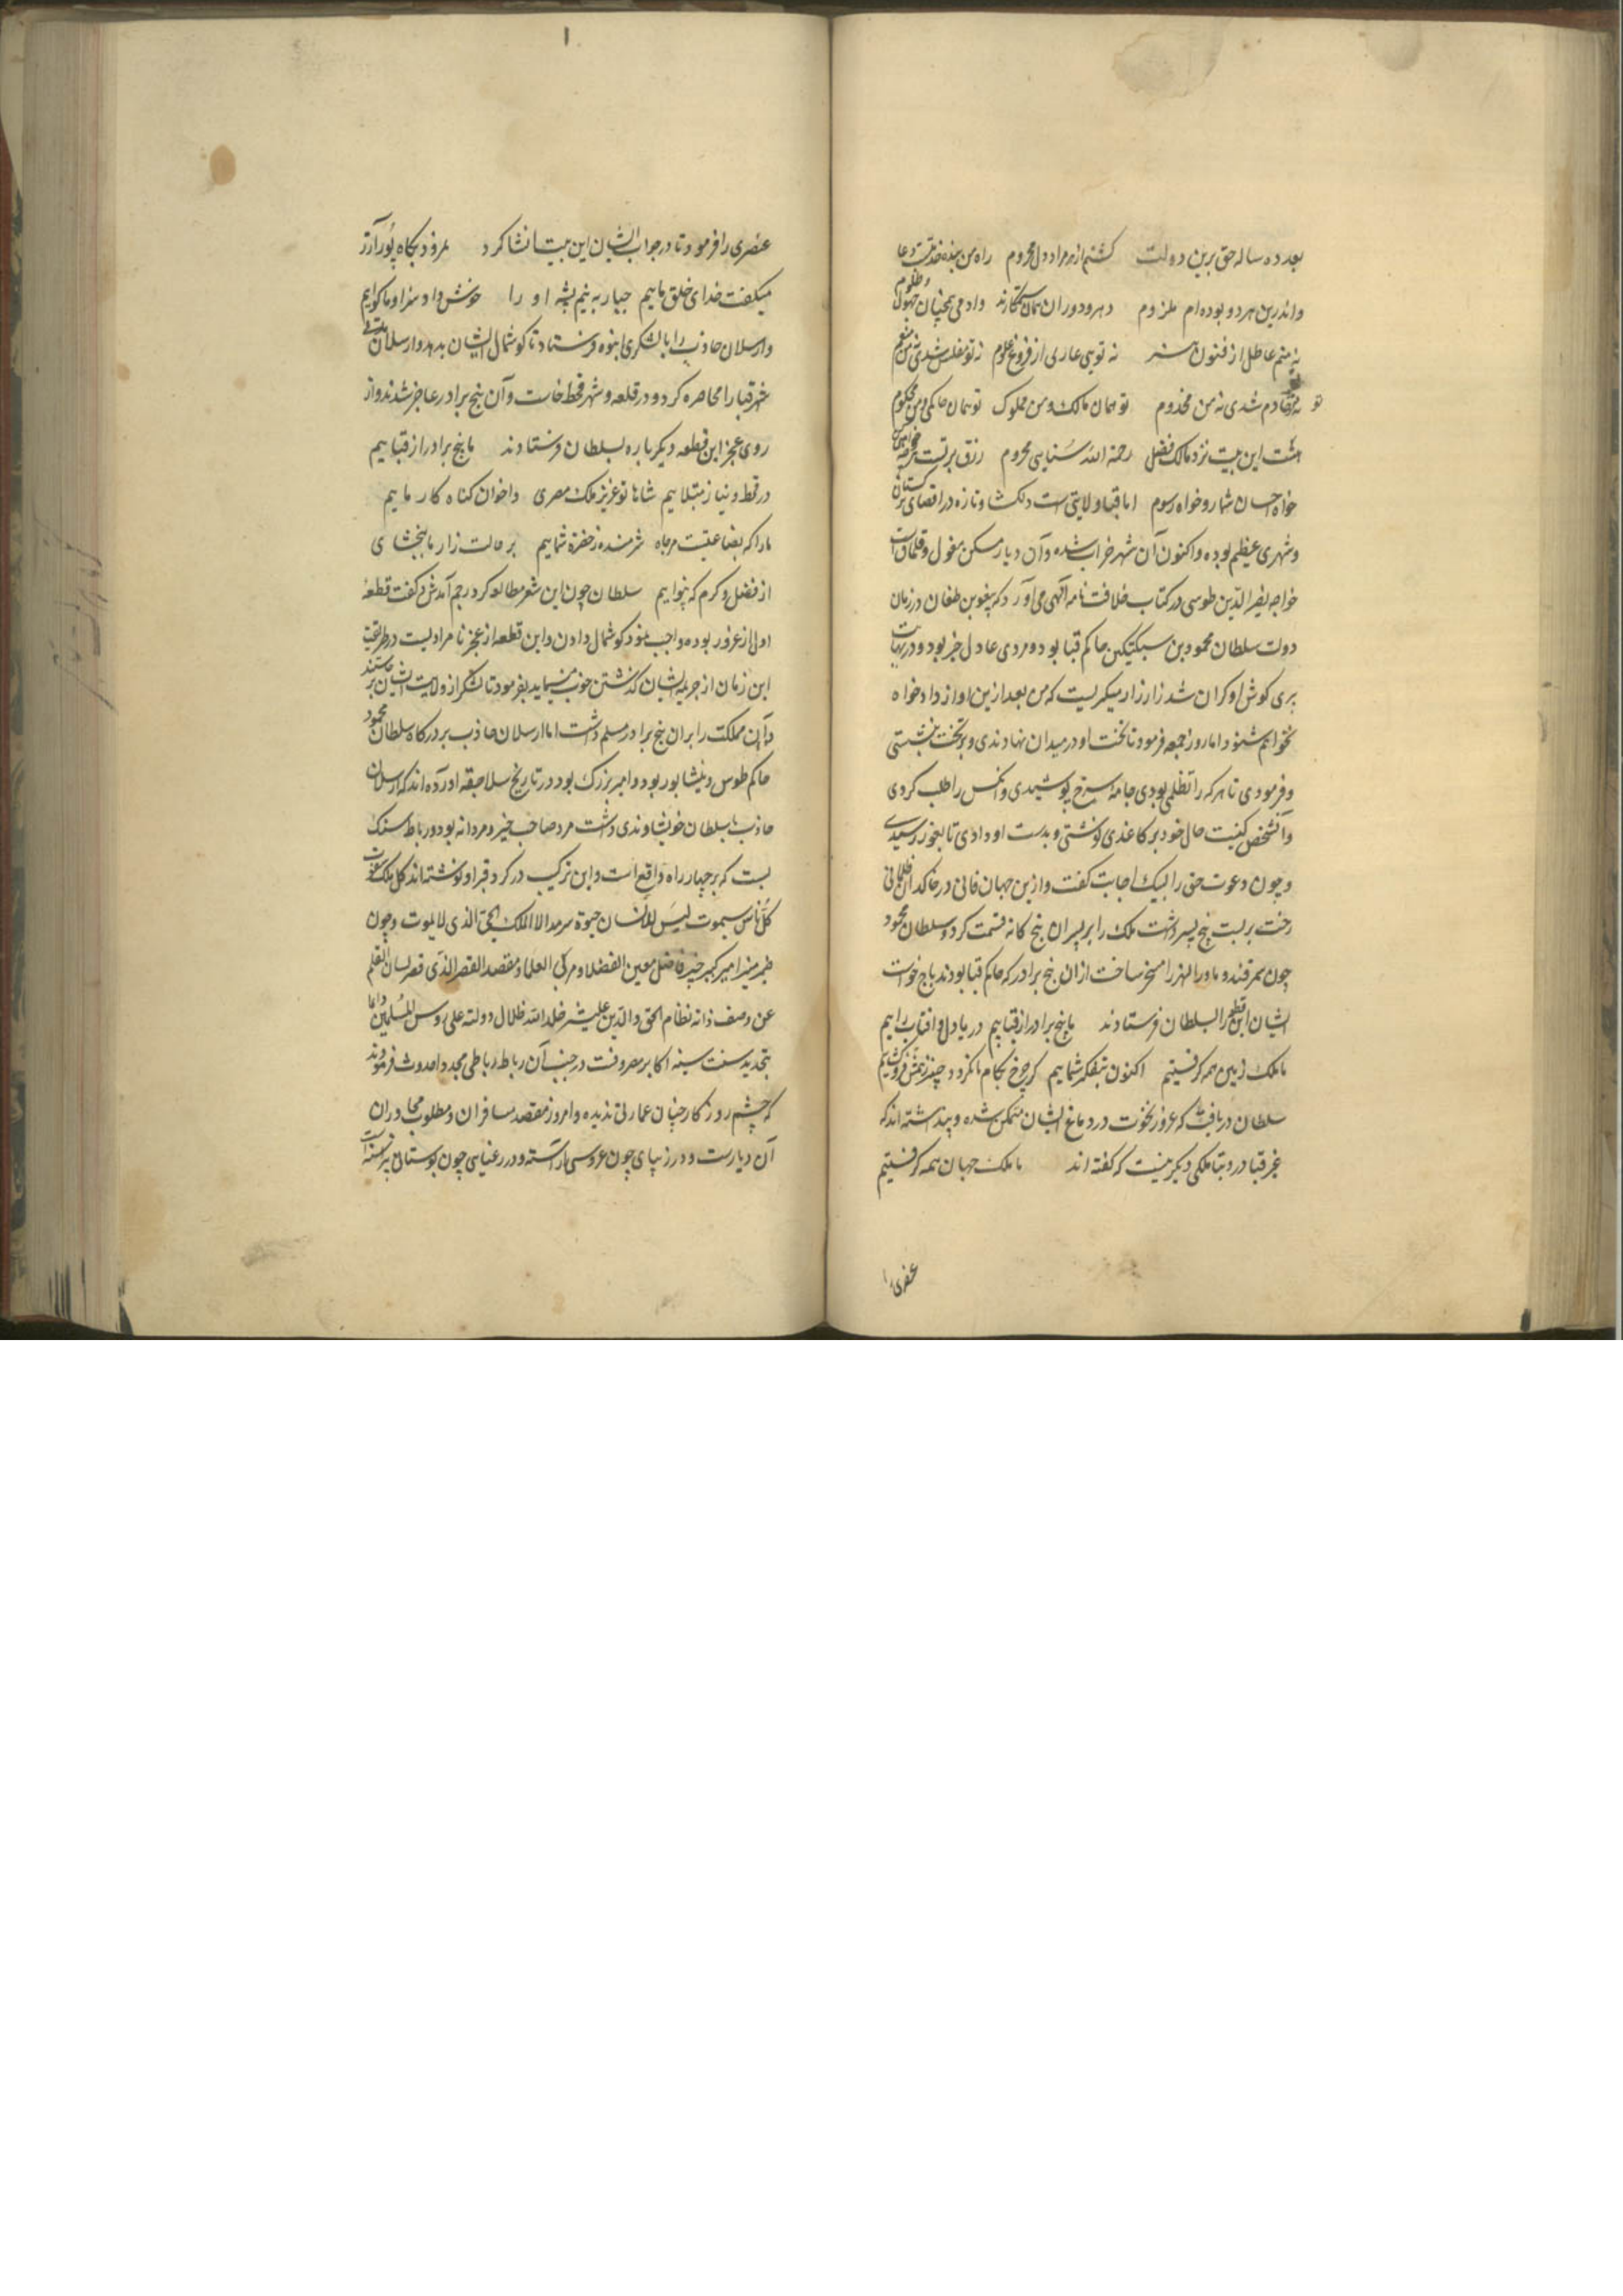 بعد ده ساله حق برین دولت کشتم از هر مراد دل محروم راه من بنده خدمتست و دعا
واندرین هر دو بوده‌ام ملزوم دهر و دوران همان ستمکارند وادمی همچنان جهول و ظلوم
نه منم عاطل از فنون هنر نه تویی عاری از فروع علوم نه تو مفلس شدی نه من منعم
نه تو خادم شدی نه من مخدوم تو همان مالک و من مملوک تو همان حاکمی و من محکوم
هست این بیت نزد مالک فضل رحمة الله سنایی محروم رزق بر تست هرچه خواهی
خواه احسان شمار و خواه رسوم اما قبا ولایتی است دلکشا و تازه در اقصای ترکستان
و شهری عظیم بوده و اکنون آن شهر خراب شده و آن دیار مسکن مغول و قلماق است
خواجه نصیر الدین طوسی در کتاب خلافت نامه الهی می آورد که یبغو بن طغان در زمان
دولت سلطان محمود بن سبکتیکین حاکم قبا بود و مردی عادل خیر بود و در نهایت
پیری کوش او کران شد زار زار میکریست که من بعد ازین اواز داد خواه
نخواهم شنود اما روز جمعه فرمود تا تخت او در میدان نهادندی و بر تخت نشستی
و فرمودی تا هر که را تظلمی بودی جامه سرخ پوشیدی و انکس را طلب کردی
و آنشخص کیفیت حال خود بر کاغذی نوشتی و بدست او دادی تا بغور رسیدی
و چون دعوت حق را لبیک اجابت کفت و ازین جهان فانی در خاکدان ظلمانی
رخت بربست پنج پسر داشت ملک را بر پسران پنج کانه قسمت کرد و سلطان محمود
چون سمرقند و ماورا النهر را مسخر ساخت از ان پنج برادر که حاکم قبا بودند باج خواست
ایشان این قطعه را بسلطان فرستادند ما پنج برادر از قباییم دریا دل و افتاب راییم
ما ملک زمین همه کرفتیم اکنون بتفکر شماییم کر چرخ بکام ما نکردد چنبر ز همش فروکشاییم
سلطان دریافت که غرور و نخوت در دماغ ایشان متمکن شده و پنداشته اند که
غیر قبا در دنیا ملکی دیکر نیست که کفته اند ما ملک جهان همه کرفتیم
عنصری را
عنصری را فرمود تا در جواب ایشان این بیت انشا کرد نمرود بکاه پور آزر
میکفت خدای خلق ماییم جبار به نیم پشه او را خوش داد سزا و ما کواییم
و ارسلان جاذب را با لشکری انبوه فرستاد تا کوشمال ایشان بدهد و ارسلان
شهر قبا را محاصره کرد و در قلعه و شهر قحط خاست و آن پنج برادر عاجز شدند و از
روی عجز این قطعه دیکر باره بسلطان فرستادند ما پنج برادر از قباییم
در قحط و نیاز مبتلاییم شاها تو عزیز ملک مصری و اخوان کناه کار ماییم
ما را که بضاعتیست مزجاه شرمنده ز حضرت شماییم بر حالت زار ما ببخشای
از فضل و کرم که بینواییم سلطان چون این شعر مطالعه کرد رحم آمدش و کفت قطعه
اول از غرور بود و واجب نمود کوشمال دادن و این قطعه از عجز و نامرادیست در طریقت
این زمان از جریمه ایشان کذشتن خوب مینماید بفرمود تا لشکر از ولایت ایشان برخاستند
و آن مملکت را بر ان پنج برادر مسلم داشت اما ارسلان جاذب بر درکاه سلطان محمود
حاکم طوس و نیشابور بود و امیر بزرک بود و در تاریخ سلاجقه اورده اند که ارسلان
جاذب با سلطان خویشاوندی داشت مرد صاحب خیر و مردانه بود و رباط سنک
بست که بر چهار راه واقع است و این ترکیب در کرد قبر او نوشته اند کل ملک سیفوت
کل ناس سیموت لیس للانسان حیوة سرمدا الا الملک الحی الذی لا یموت و چون
ضمیر منیر امیر کبیر خیر فاضل معین الفضلا و مربی العلما و مقصد الفقرا الذی قصر لسان القلم
عن وصف ذاته نظام الحق والدین علیشیر خلد الله ظلال دولته علی رؤس المسلمین دایما
بتجدید سنت سنیه اکابر مصروفست در جنب آن رباط رباطی مجدد احداث فرمودند
که چشم روزکار چنان عمارتی ندیده و امروز مقصد مسافران و مطلوب مجاوران
آن دیارست و در زیبای چون عروسی آراسته و در رعنایی چون بوستانی پیراسته است